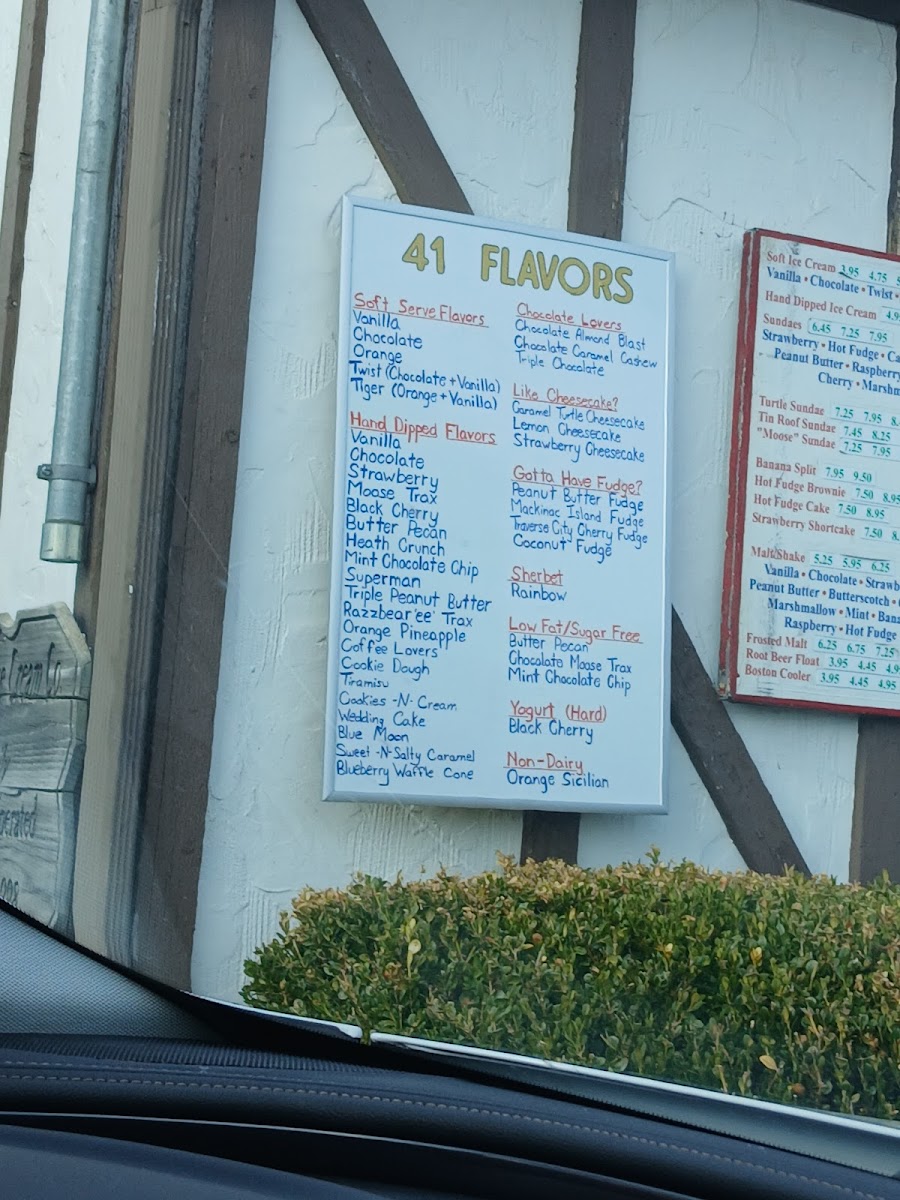 41 FLAVORS
Soft Serve Flavors
Vanilla
Chocolate
Orange
Twist (Chocolate + Vanilla)
Tiger (Orange + Vanilla)
Hand Dipped Flavors
Vanilla
Chocolate
Strawberry
Moose Trax
Black Cherry
Butter Pecan
Heath Crunch
Mint Chocolate Chip
Superman
Triple Peanut Butter
Razzbear'ee' Trax
Orange Pineapple
Coffee Lovers'
Cookie Dough
Tiramisu
Cookies -N- Cream
Wedding Cake
Blue Moon
Sweet -N- Salty Caramel
Blueberry Waffle Cone
Chocolate Lovers
Chocolate Almond Blast
Chocolate Caramel Cashew
Triple Chocolate
Like Cheesecake?
Caramel Turtle Cheesecake
Lemon Cheesecake
Strawberry Cheesecake
Gotta Have Fudge?
Peanut Butter Fudge
Mackinac Island Fudge
Traverse City Cherry Fudge
Coconut Fudge
Sherbet
Rainbow
Low Fat/Sugar Free
Butter Pecan
Chocolate Moose Trax
Mint Chocolate Chip
Yogurt (Hard)
Black Cherry
Non-Dairy
Orange Sicilian
Soft Ice Cream 3.95 4.75
Vanilla • Chocolate • Twist •
Hand Dipped Ice Cream
Sundaes 6.45 7.25 7.95
Strawberry • Hot Fudge •
Peanut Butter • Raspberry
Cherry •
Turtle Sundae 7.25 7.95
Tin Roof Sundae 7.45 8.25
"Moose" Sundae 7.25 7.95
Banana Split 7.95 9.50
Hot Fudge Brownie 7.50 8.95
Hot Fudge Cake 7.50 8.95
Strawberry Shortcake 7.50
Malt/Shake 5.25 5.95 6.25
Vanilla • Chocolate •
Peanut Butter • Butterscotch •
Marshmallow • Mint •
Raspberry • Hot Fudge
Frosted Malt 6.25 6.75 7.25
Root Beer Float 3.95 4.45
Boston Cooler 3.95 4.45 4.95
Cream Co